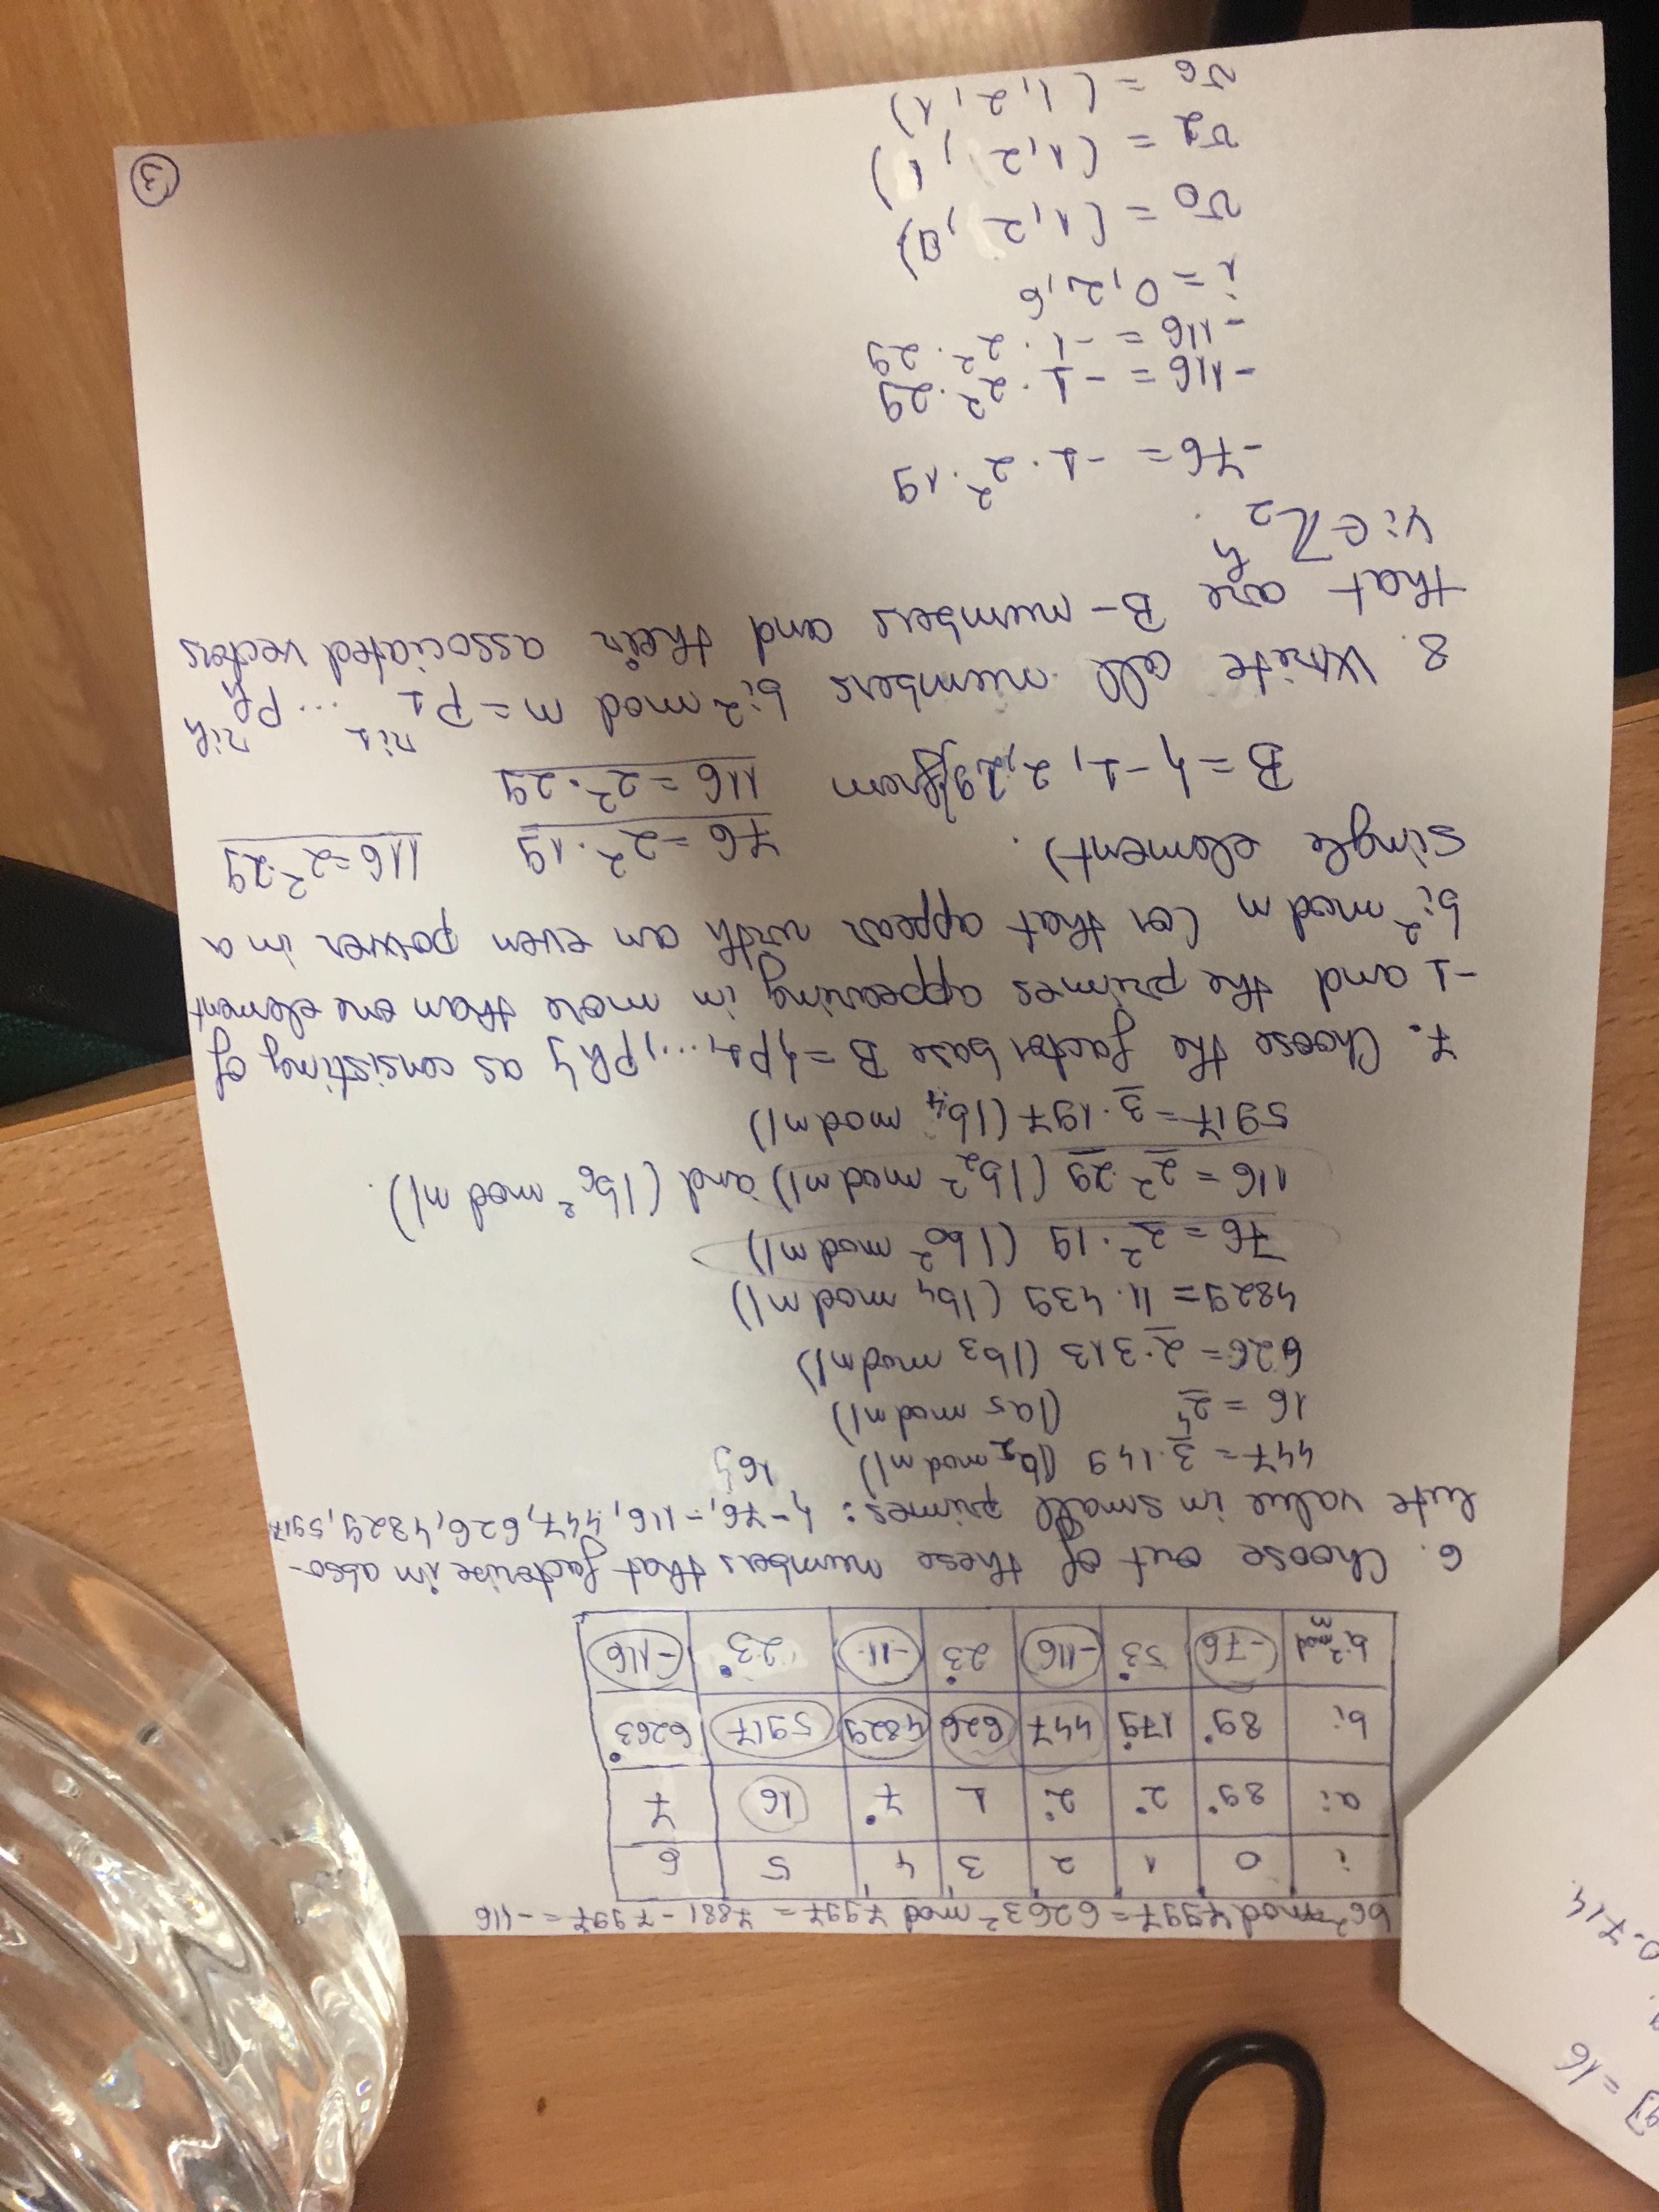 b6² mod 7997 = 6263² mod 7997 = 7881 - 7997 = -116
i 0 1 2 3 4 5 6
ai 89 2 2 1 7 16 7
bi 89 179 447 626 4829 5917 6263
bi² mod m -76 53 -116 23 -11 23 -116
6. Choose out of these numbers that factorise in abso-
lute value in small primes: {-76, -116, 447, 626, 4829, 5917,
16}
447 = 3·149 (|b2 mod n|)
16 = 2⁴ (|a5 mod n|)
626 = 2·313 (|b3 mod n|)
4829 = 11·439 (|b4 mod n|)
76 = 2²·19 (|b0² mod n|)
116 = 2²·29 (|b2² mod n|) and (|b6² mod n|).
5917 = 3·197 (|b4 mod n|)
7. Choose the factor base B = {p1, ..., pk} as consisting of
-1 and the primes appearing in more than one element
bi² mod n (or that appear with an even power in a
single element). 76 = 2²·19 116 = 2²·29
B = {-1, 2, 29} from 116 = 2²·29
8. Write all numbers bi² mod n = p1^ri1 ... pk^rik
that are B-numbers and their associated vectors
vi ∈ Z2^k.
-76 = -1·2²·19
-116 = -1·2²·29
-116 = -1·2²·29
i = 0, 2, 6
v0 = (1, 2, 0)
v2 = (1, 2, 1)
v6 = (1, 2, 1)
3
g] = 16
0.714